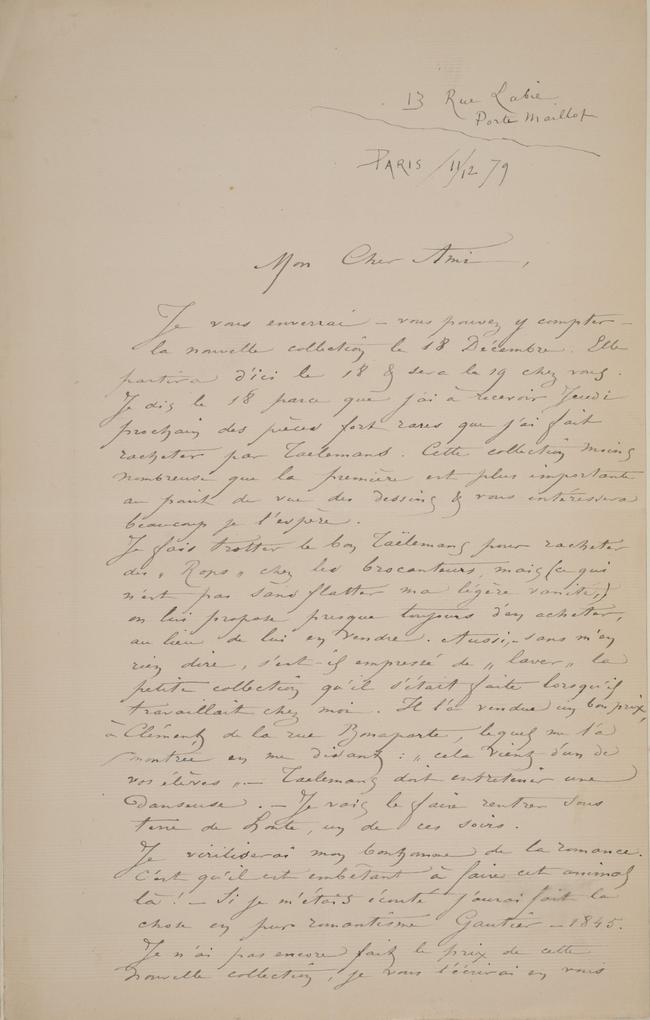 13 Rue Labie
Porte Maillot
PARIS / 11/12 79
Mon Cher Ami,
Je vous enverrai – vous pouvez y compter –
la nouvelle collection le 18 Décembre. Elle
partira d'ici le 18 & sera le 19 chez vous.
Je dis le 18 parce que j'ai à recevoir Jeudi
prochain des pièces fort rares que j'ai fait
racheter par Taelemans. Cette collection moins
nombreuse que la première est plus importante
au point de vue des dessins & vous intéressera
beaucoup je l'espère.
Je fais trotter le bon Taëlemans pour racheter
des „ Rops „ chez les brocanteurs, mais (ce qui
n'est pas sans flatter ma légère vanité,)
on lui propose presque toujours d'en acheter,
au lieu de lui en vendre. Aussi, – sans m'en
rien dire, s'est-il empressé de „ laver „ la
petite collection qu'il s'était faite lorsqu'il
travaillait chez moi. Il l'a vendue un bon prix,
à Clément, de la rue Bonaparte, lequel me l'a
montrée en me disant : „ cela vient d'un de
vos élèves „ – Taelemans doit entretenir une
Danseuse. – Je vais le faire rentrer sous
terre de honte, un de ces soirs.
Je viriliserai mon bonhomme de la romance.
C'est qu'il est embêtant à faire cet animal
là ! – Si je m'étais écouté j'aurai fait la
chose en pur romantisme Gautier – 1845.
Je n'ai pas encore fait le prix de cette
nouvelle collection, je vous l'écrirai en vous